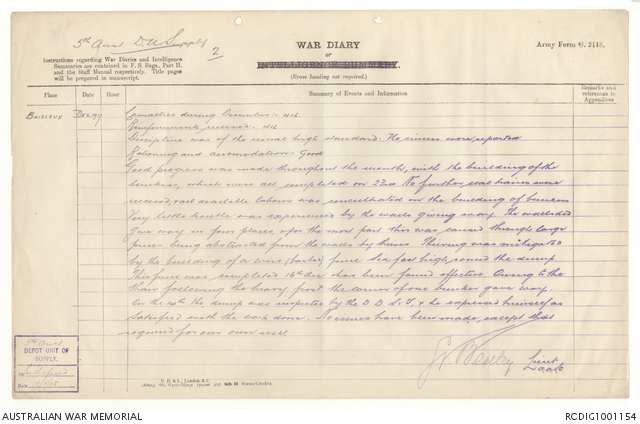 5th Aust D.U. Supply
2
WAR DIARY
OF
Army Form C. 2118.
Instructions regarding War Diaries and Intelligence
Summaries are contained in F. S. Regs., Part II.
and the Staff Manual respectively. Title pages
will be prepared in manuscript.
(Erase heading not required.)
Place
Date
Hour
Summary of Events and Information
Remarks and
references to
Appendices
Dec 1917
Casualties during December: Nil
Reinforcements received: Nil
Discipline was of the usual high standard. No crimes were reported
Rationing and accomodation: Good
Good progress was made throughout the month, with the building of the
bunkers, which were all completed on 23rd. No further coal trains were
received, and available labour was concentrated on the building of bunkers
Very little trouble was experienced by the walls giving way. The walls did
give way in four places & for the most part this was caused through large
pieces being abstracted from the walls by hand. Thieving was mitigated
by the building of a wire (barbed) fence six feet high, round the dump.
This fence was completed 16th Dec & has been found effective. Owing to the
thaw following the heavy frost the corner of one bunker gave way.
On the the dump was inspected by the D.D.S.&T. & he expressed himself as
satisfied with the work done. No issues have been made, except that
required for our own use.
Lieut
5th Aust
DEPOT UNIT OF
SUPPLY.
Date
AUSTRALIAN WAR MEMORIAL
RCDIG1001154